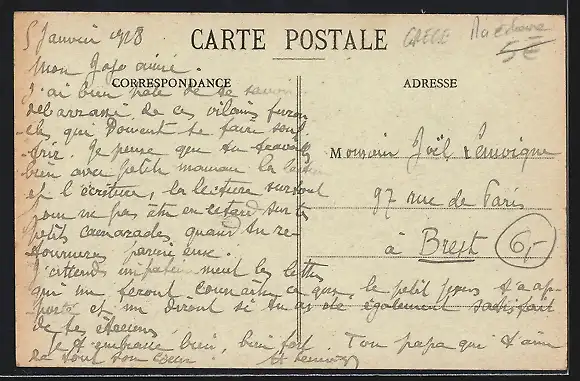 5 Janvier 1918
CARTE POSTALE
GRECE
5€
Mon Jojo aimé.
CORRESPONDANCE
ADRESSE
J'ai bien hâte de te savoir
débarrassé de ces vilains furon-
cles qui doivent te faire souf-
frir. Je pense que tu travailles
bien avec petite maman la
et l'écriture, la lecture surtout
pour ne pas être en retard sur tes
petits camarades quand tu re-
tourneras parmi eux.
J'attends impatiemment les lettres
qui me feront connaître ce que le petit t'a ap-
porté et me diront si tu as été également satisfait
de tes étrennes.
Je t'embrasse bien, bien fort. Ton papa qui t'aime
de tout son cœur.
Monsieur Joël
97 rue de Paris
à Brest
6,-